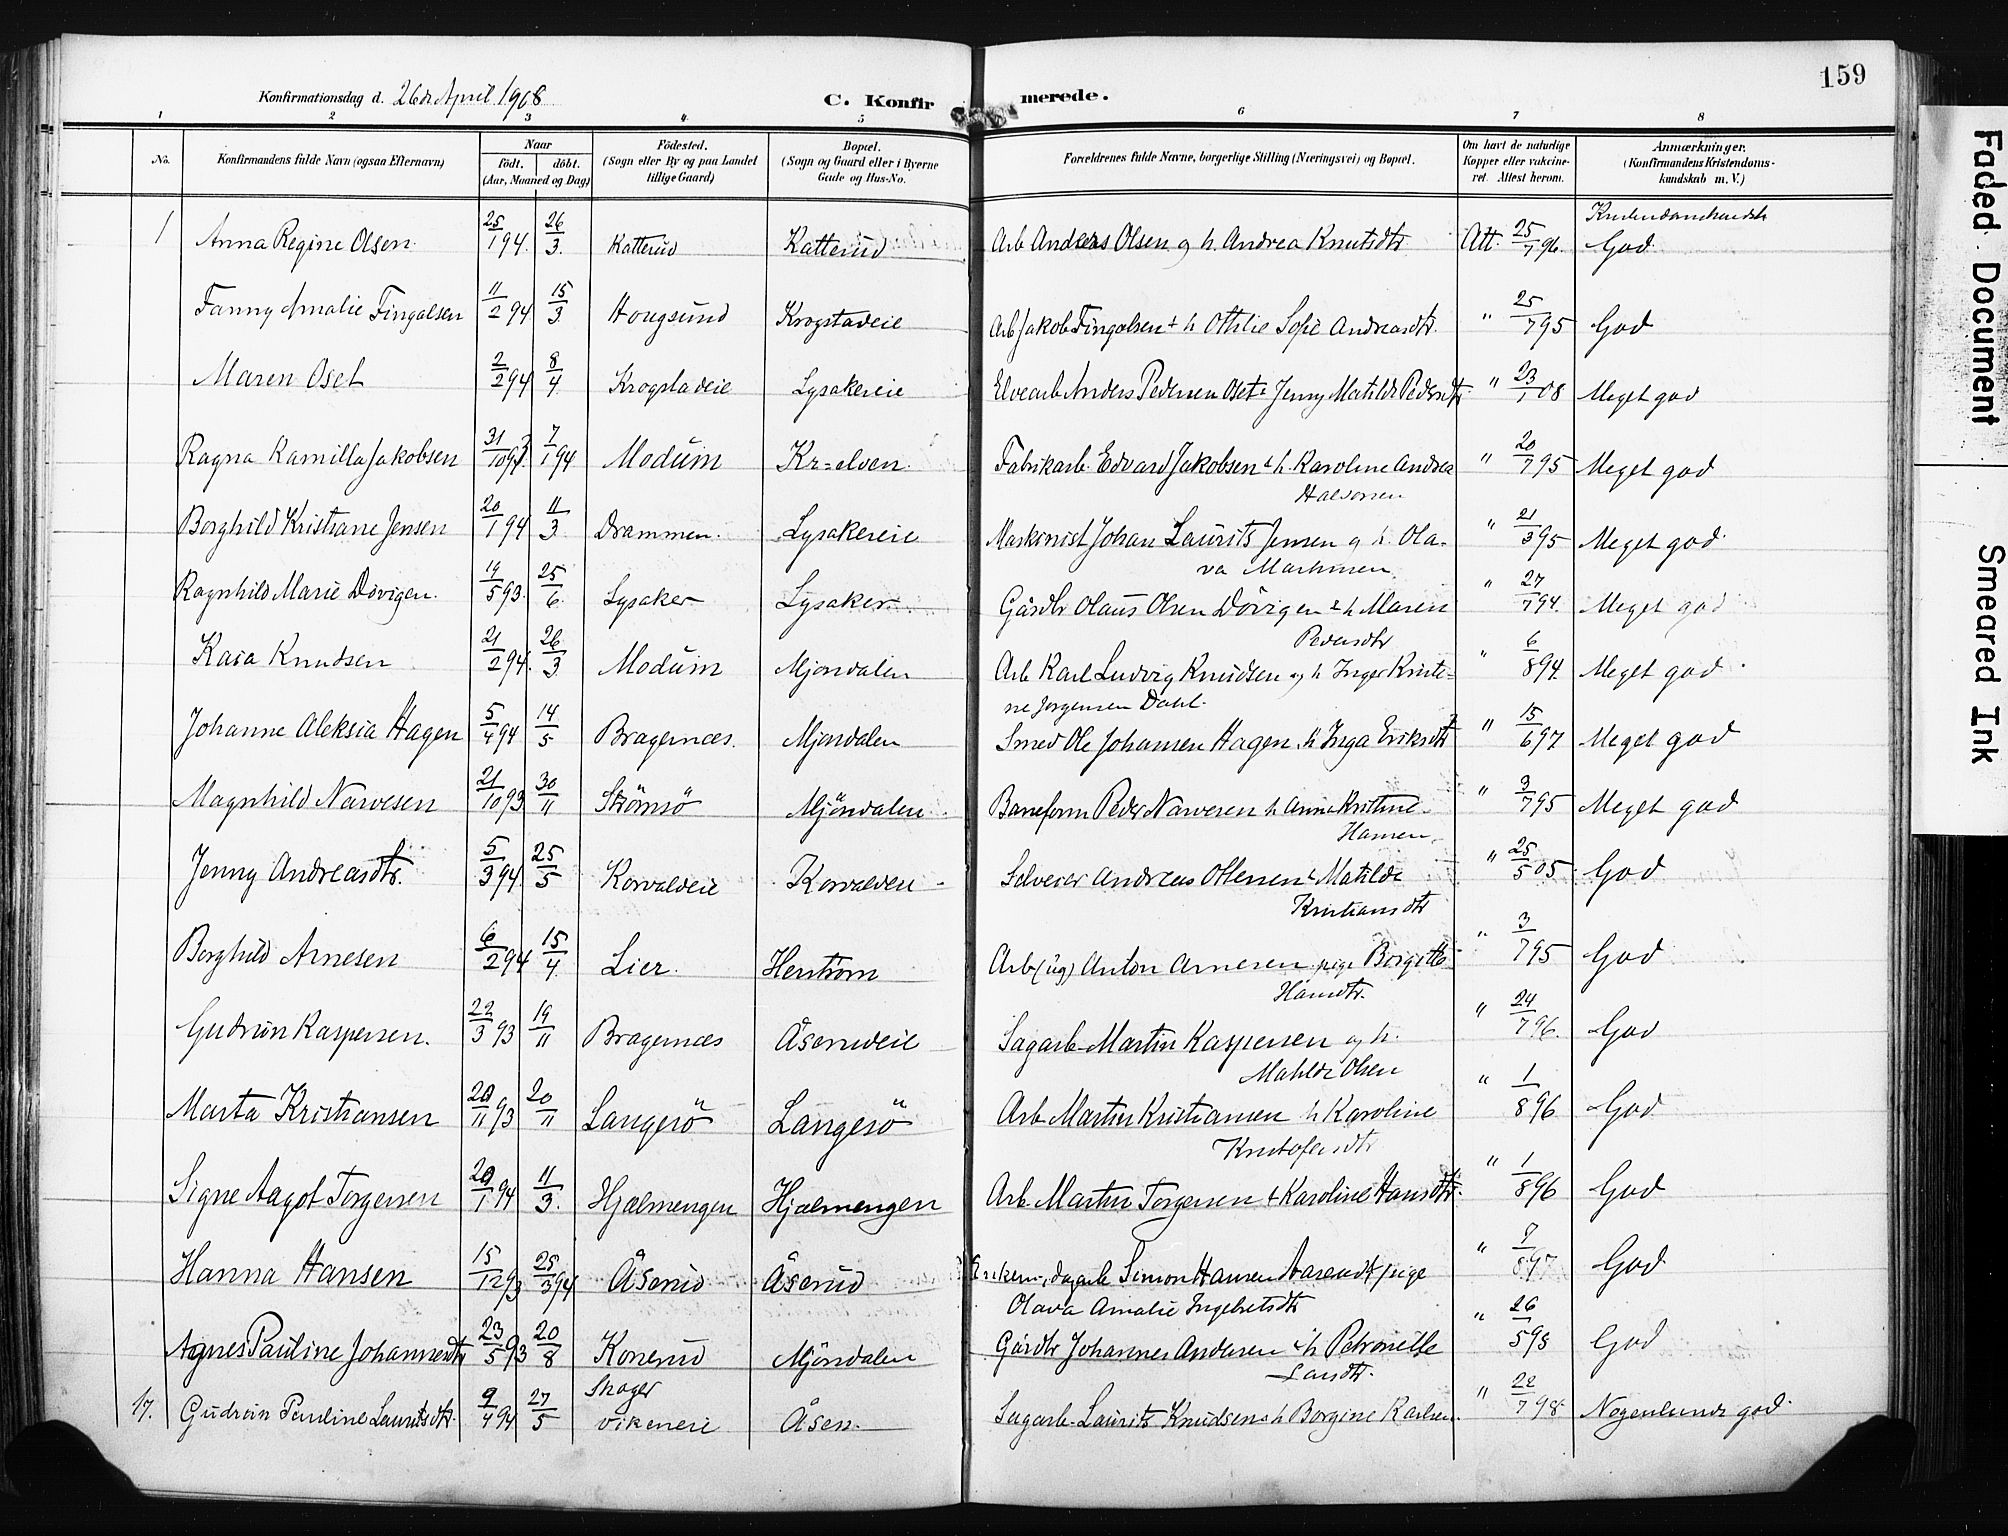 159
Konfirmationsdag d. 26de April 1908
C. Konfirmerede.
1 2 3 4 5 6 7 8
No. Konfirmandens fulde Navn (ogsaa Efternavn) Naar født. døbt. (Aar, Maaned og Dag) Fødested. (Sogn eller By og paa Landet tillige Gaard) Bopæl. (Sogn og Gaard eller i Byerne Gade og Hus-No. Forældrenes fulde Navne, borgerlige Stilling (Næringsvei) og Bopæl. Om havt de naturlige Kopper eller vakcineret. Attest herom. Anmærkninger. (Konfirmandens Kristendomskundskab m. V.)
1 Anna Regine Olsen 25/1 94. 26/3. Katterud Katterud Arb Anders Olsen og h. Andrea Knutsdtr Att. 25/7 96. God
Fanny Amalie Fingalsen 11/2 94 15/3 Hougsund Krogstadeie Arb Jakob Fingalsen + h Othilie Sofie Andreasdtr. " 25/7 95 God
Maren Oset 2/2 94 8/4 Krogstadeie Lysakereie Elvearb Anders Pedersen Oset + Jenny Matilde Pedersdtr " 23/1 08 Meget god
Ragna Kamilla Jakobsen 31/10 93. 7/1 94 Modum Kr-elven. Fabrikarb. Edvard Jakobsen + h. Karoline Andrea " 20/7 95 Meget god
Borghild Kristiane Jensen 20/1 94 11/3 Drammen. Lysakereie Maskinist Johan Laurits Jensen og h. Ola- " 21/3 95 Meget god
va
Ragnhild Marie Dövigen. 19/5 93. 25/6 Lysaker Lysaker. Gårdbr Olaus Olsen Dövigen + h Maren " 27/7 94. Meget god
Pedersdtr
Kara Knudsen 21/2 94. 26/3 Modum Mjøndalen Arb Karl Ludvig Knudsen og h Inger Kristi- " 6/8 94 Meget god
ne Jørgensen Dahl.
Johanne Aleksia Hagen 5/4 94 14/5 Bragernæs. Mjøndalen Smed Ole Johansen Hagen, h Inga Eriksdtr " 15/6 97 Meget god
Magnhild Narvesen 21/10 93 30/11 Strömsö Mjöndalen. Baneform Peder Narvesen h Anna Kristine " 3/7 95 Meget god
Hansen
Jenny Andreasdtr. 5/3 94 25/5 Korvaldeie Korvalden Selveier Andreas Ottersen + Matilde " 25/5 05 God
Kristiansdtr
Borghild Arnesen 6/2 94 15/4 Lier. Herstrøm Arb (ug) Anton Arnesen pige Borgitte " 3/7 95 God
Hansdtr.
Gudrun Kaspersen. 22/3 93 19/11 Bragernæs Åserudeie Sagarb Martin Kaspersen og h. " 24/7 96. God
Matilde Olsen
Marta Kristiansen 20/11 93 20/11 Langesö Langesö Arb Martin Kristiansen h Karoline " 1/8 96 God
Kristofersdtr
Signe Aagot Torgersen 20/1 94 11/3. Hjælmengen Hjælmengen Arb. Martin Torgersen + Karoline Hansdtr. " 1/8 96 God
Hanna Hansen 15/12 93 25/3 94 Åserud Åserud Enkem., dagarb Simon Hansen Aaserud + pige " 9/8 97 God
Olava Amalie Ingebretsdtr
Agnes Pauline Johannesdtr 23/5 93 20/8 Konerud Mjöndalen Gårdbr Johannes Andersen + h Petronelle " 26/5 98 God
Larsdtr.
17. Gudrun Pauline Lauritsdtr. 9/4 94 27/5 Skoger Vikeneie Åsen. Sagarb. Laurits Knudsen + h Borgine Karlsen. " 22/7 98 Nogenlunde god.
Faded Document
Smeared Ink